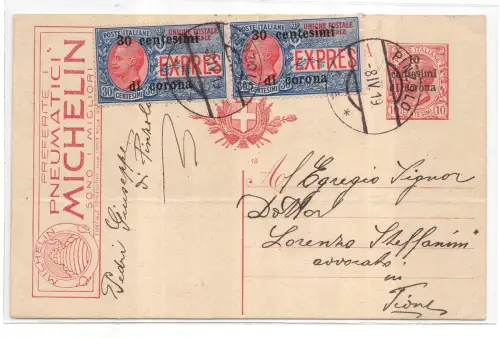 PREFERITE I
PNEUMATICI
MICHELIN
SONO I MIGLIORI
MICHELIN
POSTE ITALIANE
UNIONE POSTALE
30 centesimi
di corona
EXPRES
30
CENTESIMI
POSTE ITALIANE
UNIONE POSTALE
30 centesimi
di corona
EXPRES
CENTESIMI
-8 IV 19
10
centesimi
di corona
10
18
Pedri Giuseppe
di Pinzolo
All Egregio Signor
Dottor
Lorenzo Steffanini
avvocato
in
Tione